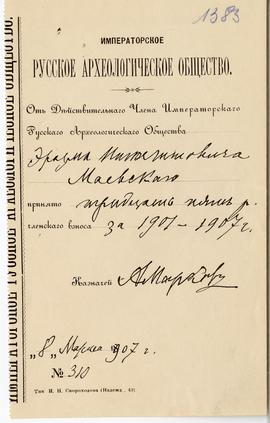 1383
ИМПЕРАТОРСКОЕ
РУССКОЕ АРХЕОЛОГИЧЕСКОЕ ОБЩЕСТВО.
Отъ Дѣйствительнаго Члена Императорскаго
Русскаго Археологическаго Общества
Эразма
Маевскаго
принято тридцать пять р.
членскаго взноса за 1901-1907 г.
Казначей АМарковъ
"8" Марта 1907 г.
№ 310
Тип. И. Н. Скороходова (Надежд. 43)
ИМПЕРАТОРСКОЕ РУССКОЕ АРХЕОЛОГИЧЕСКОЕ ОБЩЕСТВО.